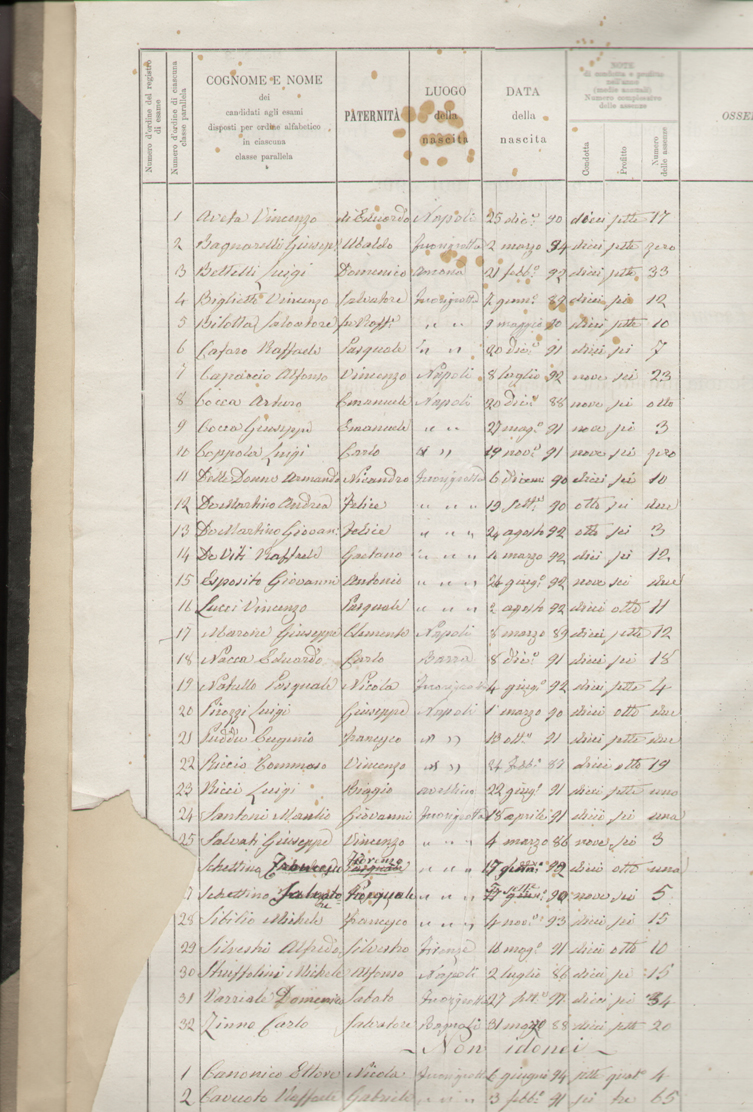 Numero d'ordine del registro di esame
Numero d'ordine di ciascuna classe parallela
COGNOME E NOME
dei
candidati agli esami
disposti per ordine alfabetico
in ciascuna
classe parallela
PATERNITÀ
LUOGO
della
nascita
DATA
della
nascita
NOTE
di condotta e profitto
nell'anno
(medie annuali)
Numero complessivo
delle assenze
Condotta
Profitto
Numero delle assenze
OSSE
1 Aveta Vincenzo di Eduardo Napoli 25 dic.e 90 dieci sette 17
2 Bagnarelli Giusepp Ubaldo Fuorigrotta 2 marzo 94 dieci sette zero
3 Bettelli Luigi Domenico Ancona 21 febb.o 92 dieci sette 33
4 Biglietti Vincenzo Salvatore Fuorigrotta 7 genn.o dieci sei 12
5 Bilotta Salvatore fu Raff.e " " " 9 maggio 90 dieci sette 10
6 Cafaro Raffaele Pasquale " " " 20 dic.e 91 dieci sei 7
7 Capriccio Alfonso Vincenzo Napoli 8 luglio 92 nove sei 23
8 Cocca Arturo Emanuele Napoli 20 dic.e 88 nove sei otto
9 Cocca Giuseppe Emanuele " " 27 mag.o 91 nove sei 3
10 Coppola Luigi Carlo " " 19 nov.e 91 nove sei zero
11 Delle Donne Armando Nicandro Fuorigrotta 6 90 dieci sei 10
12 De Martino Andrea Felice " " " 19 sett.e 90 otto sei due
13 De Martino Giovan: Felice " " " 24 agosto 92 otto sei 3
14 De Viti Raffaele Gaetano " " " marzo 92 dieci sei 12
15 Esposito Giovanni Antonio " " " 26 giug.o 92 nove sei due
16 Lucci Vincenzo Pasquale " " " 2 agosto 92 dieci otto 11
17 Marone Giuseppe Clemente Napoli 8 marzo 89 dieci sette 12
18 Nacca Eduardo Carlo Barra 8 dic.e 91 dieci sei 18
19 Natullo Pasquale Nicola Fuorigrotta 4 giug.o 92 dieci sette 4
20 Pirozzi Luigi Giuseppe Napoli 1 marzo 90 dieci otto due
21 Puddu Eugenio Francesco " " 13 ott.e 91 dieci sette due
22 Riccio Tommaso Vincenzo " " febb.o 87 dieci otto 19
23 Ricci Luigi Biagio Avellino 22 giug.o 91 dieci sette uno
24 Santoni Manlio Giovanni Fuorigrotta 18 aprile 91 dieci sei una
25 Salvati Giuseppe Vincenzo " " " 4 marzo 86 nove sei 3
Schettino Francesco Fiorenzo " " " 17 dieci otto una
7 Schettino Salvatore Pasquale " " " 90 nove sei 5
28 Sibilio Michele Francesco " " " 4 nov.e 93 dieci sei 15
29 Silvestri Alfredo Silvestro Firenze 16 mag.o 91 dieci otto 10
30 Struffolini Michele Alfonso Napoli 2 luglio 86 dieci sei 15
31 Varriale Domenico Sabato Fuorigrotta 27 91 dieci sei 34
32 Zinno Carlo Salvatore Bagnoli 31 marzo 88 dieci sette 20
- Non idonei -
1 Canonico Ettore Nicola Fuorigrotta 6 giugno 94 sette quat.o 4
2 Cavuoto Raffaele Gabriele " " " 3 febb.o 91 sei tre 65